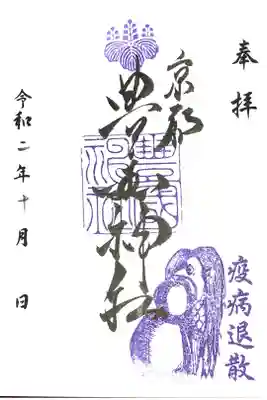 奉拝
京都
豊国神社
疫病退散
令和二年十月 日